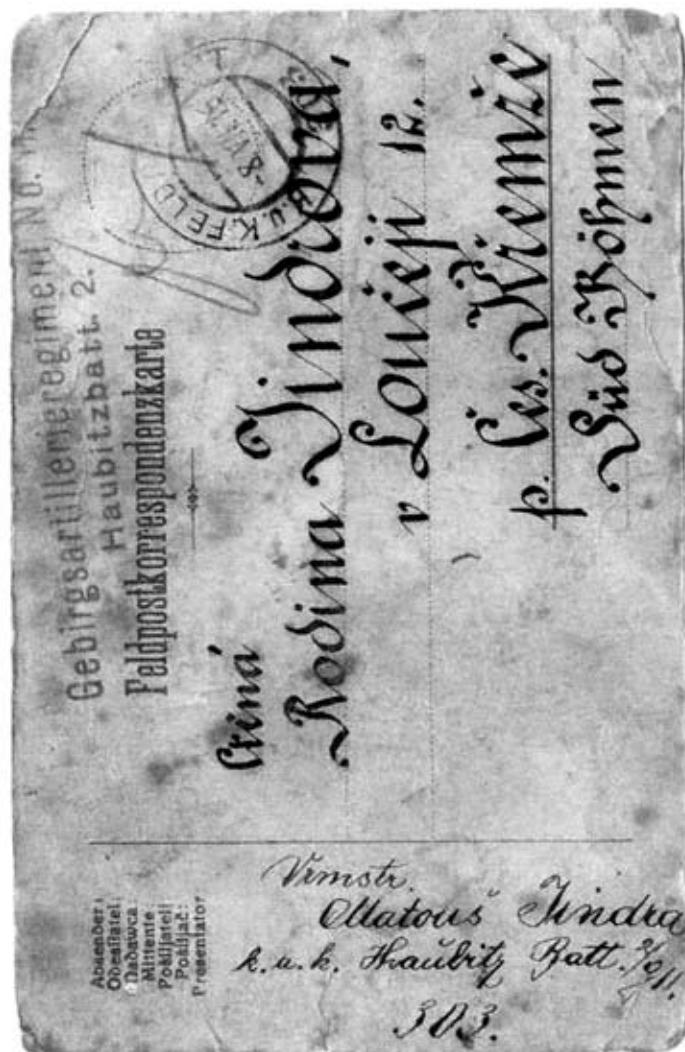 Gebirgsartillerieregiment No.
Haubitzbatt. 2.
Feldpostkorrespondenzkarte
K.u.K. FELD
Ctěná
Rodina Jindrova,
v Loučeji 12.
p. Čes. Křemže
Süd Böhmen
Absender:
Odesílatel:
Nadawca:
Mittente:
Pošiljatelj:
Pošiljač:
Presentator
Matouš Jindra
k.u.k. Haubitz Batt.
303.